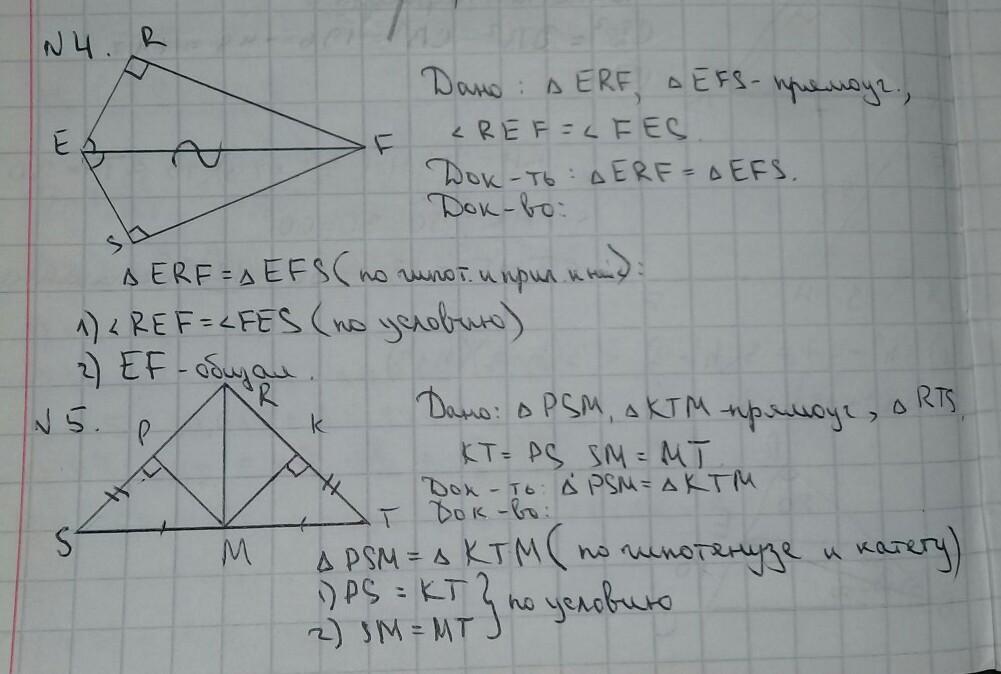 N4.
R
E
F
S
Дано: △ ERF, △ EFS - прямоуг.,
< REF = < FES.
Док-ть: △ ERF = △ EFS.
Док-во:
△ ERF = △ EFS (по гипот. и прил. ):
1) < REF = < FES (по условию)
2) EF - общая.
N5.
R
P
K
S
M
T
Дано: △ PSM, △ KTM - прямоуг, △ RTS,
KT = PS SM = MT
Док-ть: △ PSM = △ KTM
Док-во:
△ PSM = △ KTM (по гипотенузе и катету)
1) PS = KT } по условию
2) SM = MT